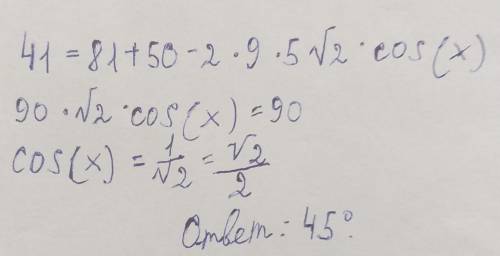 41 = 81 + 50 - 2 · 9 · 5√2 · cos(x)
90 · √2 · cos(x) = 90
cos(x) = 1/√2 = √2/2
Ответ: 45°.